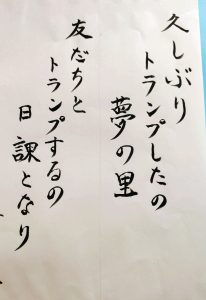 久しぶり
トランプしたの
夢の里
友だちと
トランプするの
日課となり